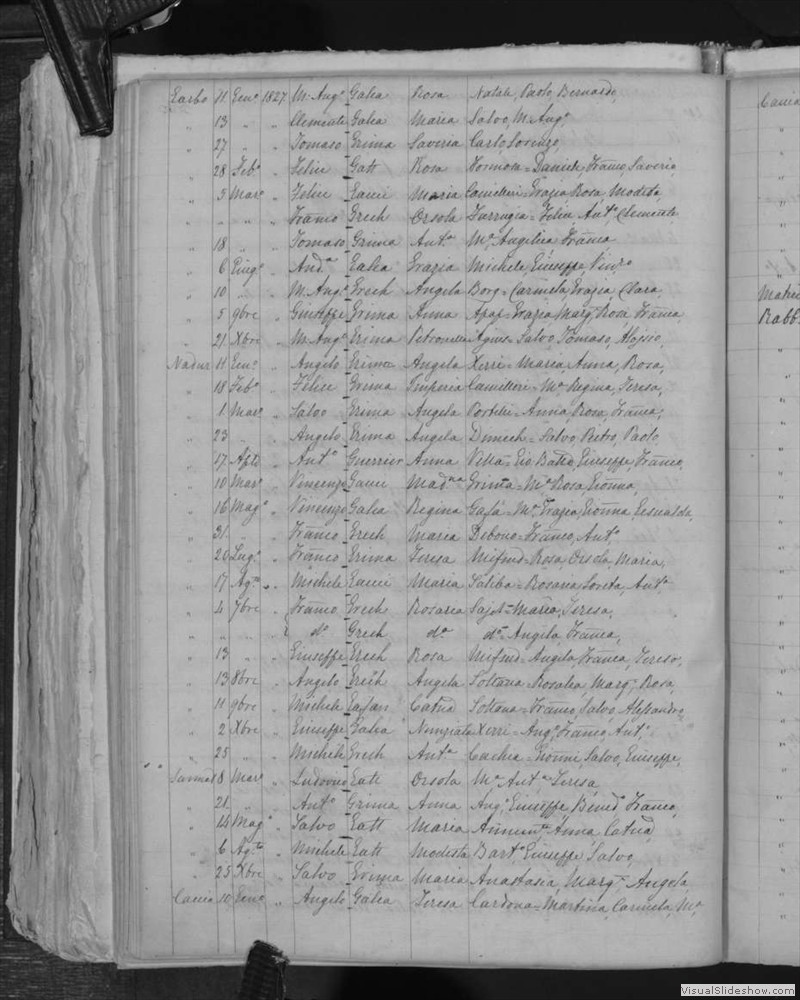 Garbo 11 Genº 1827 M. Angº Galea Rosa Natale, Paolo, Bernardo,
" 13 " " Clemente Galea Maria Salvo, M. Angº
" 27 " " Tomaso Grima Saveria Carlo, Lorenzo,
" 28 Febº " Felice Gatt Rosa Daniele, Franco, Saverio,
" 5 Marº " Felice Gauci Maria Camilleri = Grazia, Rosa, Modesta,
" " " " Franco Grech Orsola Farrugia = Felice, Antº, Clemente
" 18 " " Tomaso Grima Antª Mª Angelica, Franca
" 6 Giugº " Andª Galea Grazia Michele, Giuseppe, Vinzo
" 10 " " M. Angº Grech Angela Borg = Carmela, Grazia, Clara,
" 5 9bre " Giuseppe Grima Anna Apap = Grazia, Margª, Rosa, Franca,
" 21 Xbre " M. Angº Grima Petronella Agius = Salvo, Tomaso, Aloisio,
Nadur 11 Genº " Angelo Grima Angela Xerri = Maria, Anna, Rosa,
" 18 Febº " Felice Grima Imperia Camilleri = Mª Regina, Teresa,
" 1 Marº " Salvo Grima Angela Portelli = Anna, Rosa, Franca,
" 23 " " Angelo Grima Angela Dimech = Salvo, Pietro, Paolo
" 17 " Antº Guerrier Anna Vella = Gio Batta, Giuseppe, Franco,
" 10 Marº " Vincenzo Gauci Madnª Grima = Mª Rosa, Gionna,
" 16 Magº " Vincenzo Galea Regina Gafà = Mª Grazia, Gionna, Gesualda,
" 31 " " Franco Grech Maria Debono = Franco, Antº
" 20 Lugº " Franco Grima Teresa Mifsud = Rosa, Orsola, Maria,
" 17 Agto " Michele Gauci Maria Saliba = Rosaria, Loreta, Antª
" 4 7bre " Franco Grech Rosaria Maria, Teresa,
" " " " dº Grech dº dº = Angela, Franca,
" 13 " " Giuseppe Grech Rosa Mifsud = Angela, Franca, Teresa,
" 13 8bre " Angelo Grech Angela Soltana = Rosalea, Margª, Rosa,
" 11 9bre " Michele Catna Soltana = Franco, Salvo, Alessandro,
" 2 Xbre " Giuseppe Galea Nunziata Xerri = Angº, Franco, Antº
" 25 " " Michele Grech Antª Cachia = Gionni, Salvo, Giuseppe,
Sannat 8 Marº " Ludovico Gatt Orsola Mª Antª, Teresa
" 21 " " Antº Grima Anna Angº, Giuseppe, Benedº, Franco,
" 14 Magº " Salvo Gatt Maria Annunta, Anna, Catna,
" 6 Agto " Michele Gatt Modesta Bartº, Giuseppe, Salvo,
" 25 Xbre " Salvo Grima Maria Anastasia, Margª, Angela,
Caccia 10 Genº " Angelo Galea Teresa Cardona = Martina, Carmela, Mª
Caccia
Rabb
VisualSlideshow.com